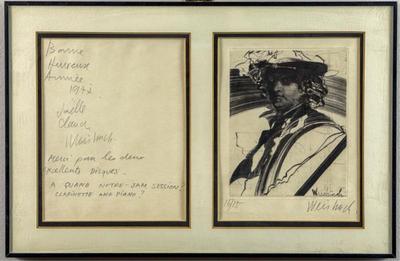 Bonne
Heureuse
Année
1972
Joëlle
Claude
Weisbuch
Merci pour les deux
excellents disques.
A QUAND NOTRE JAM SESSION?
CLARINETTE AND PIANO?
Weisbuch
Weisbuch